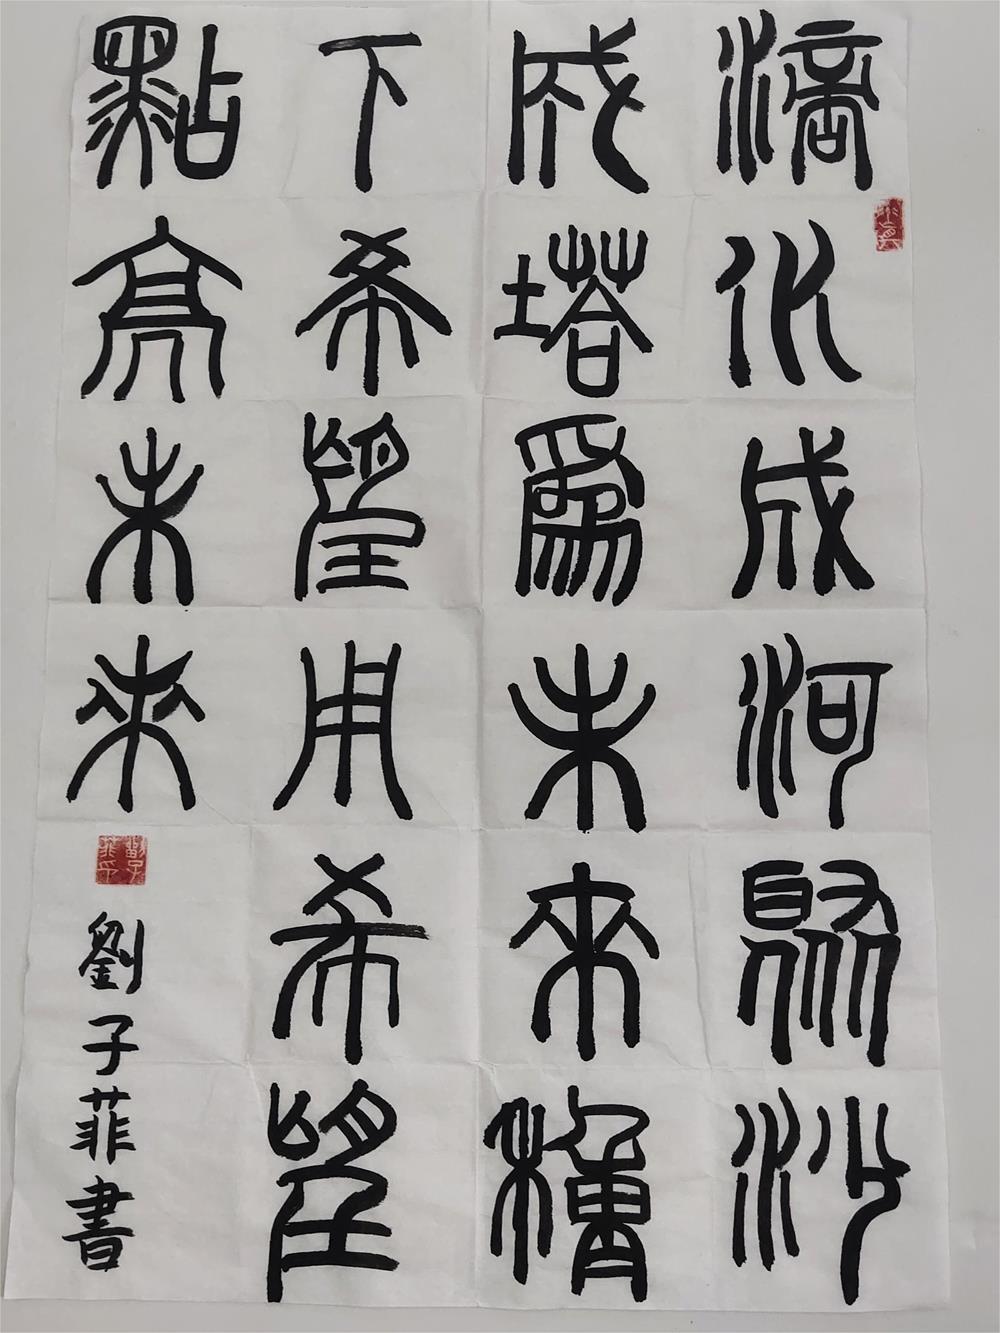 滴水成河聚沙
成塔為未來種
下希望用希望
點亮未來
劉子菲書
劉子菲印